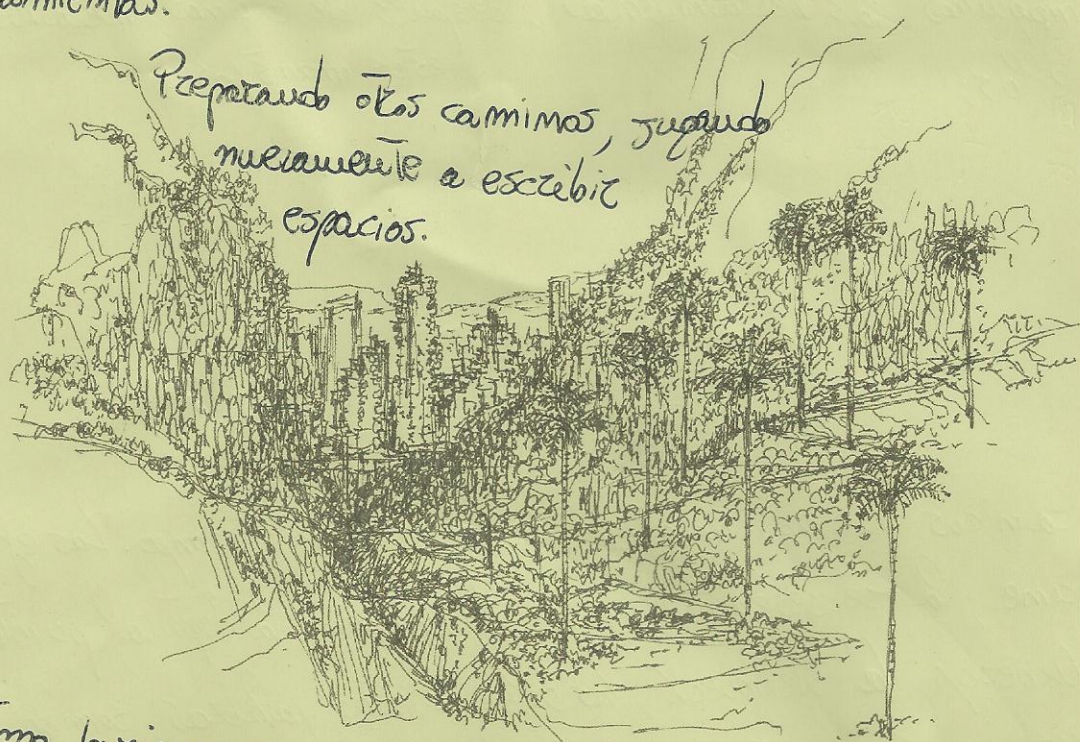 Preparando otros caminos, jugando
nuevamente a escribir
espacios.